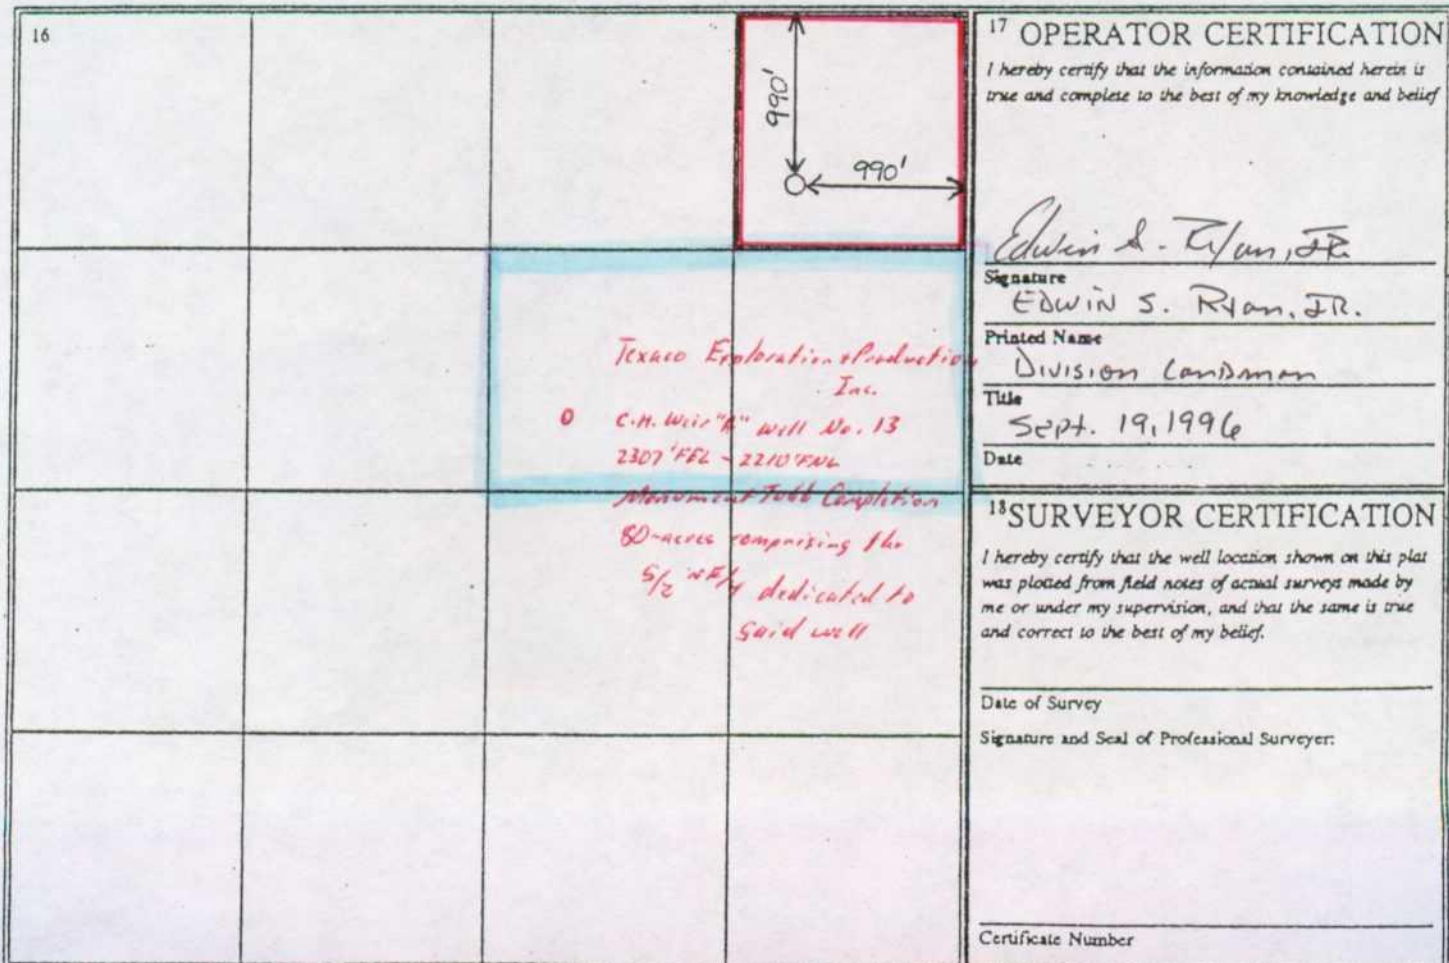 16
990'
990'
Texaco Exploration + Production
Inc.
O C.H. Weir "A" well No. 13
2307' FEL - 2210' FNL
Monument Tubb Completion
80-acres comprising the
S/2 NE/4 dedicated to
said well
17 OPERATOR CERTIFICATION
I hereby certify that the information contained herein is
true and complete to the best of my knowledge and belief
Edwin S. Ryan, JR.
Signature
EDWIN S. Ryan, JR.
Printed Name
Division Landman
Title
Sept. 19, 1996
Date
18 SURVEYOR CERTIFICATION
I hereby certify that the well location shown on this plat
was plotted from field notes of actual surveys made by
me or under my supervision, and that the same is true
and correct to the best of my belief.
Date of Survey
Signature and Seal of Professional Surveyer:
Certificate Number